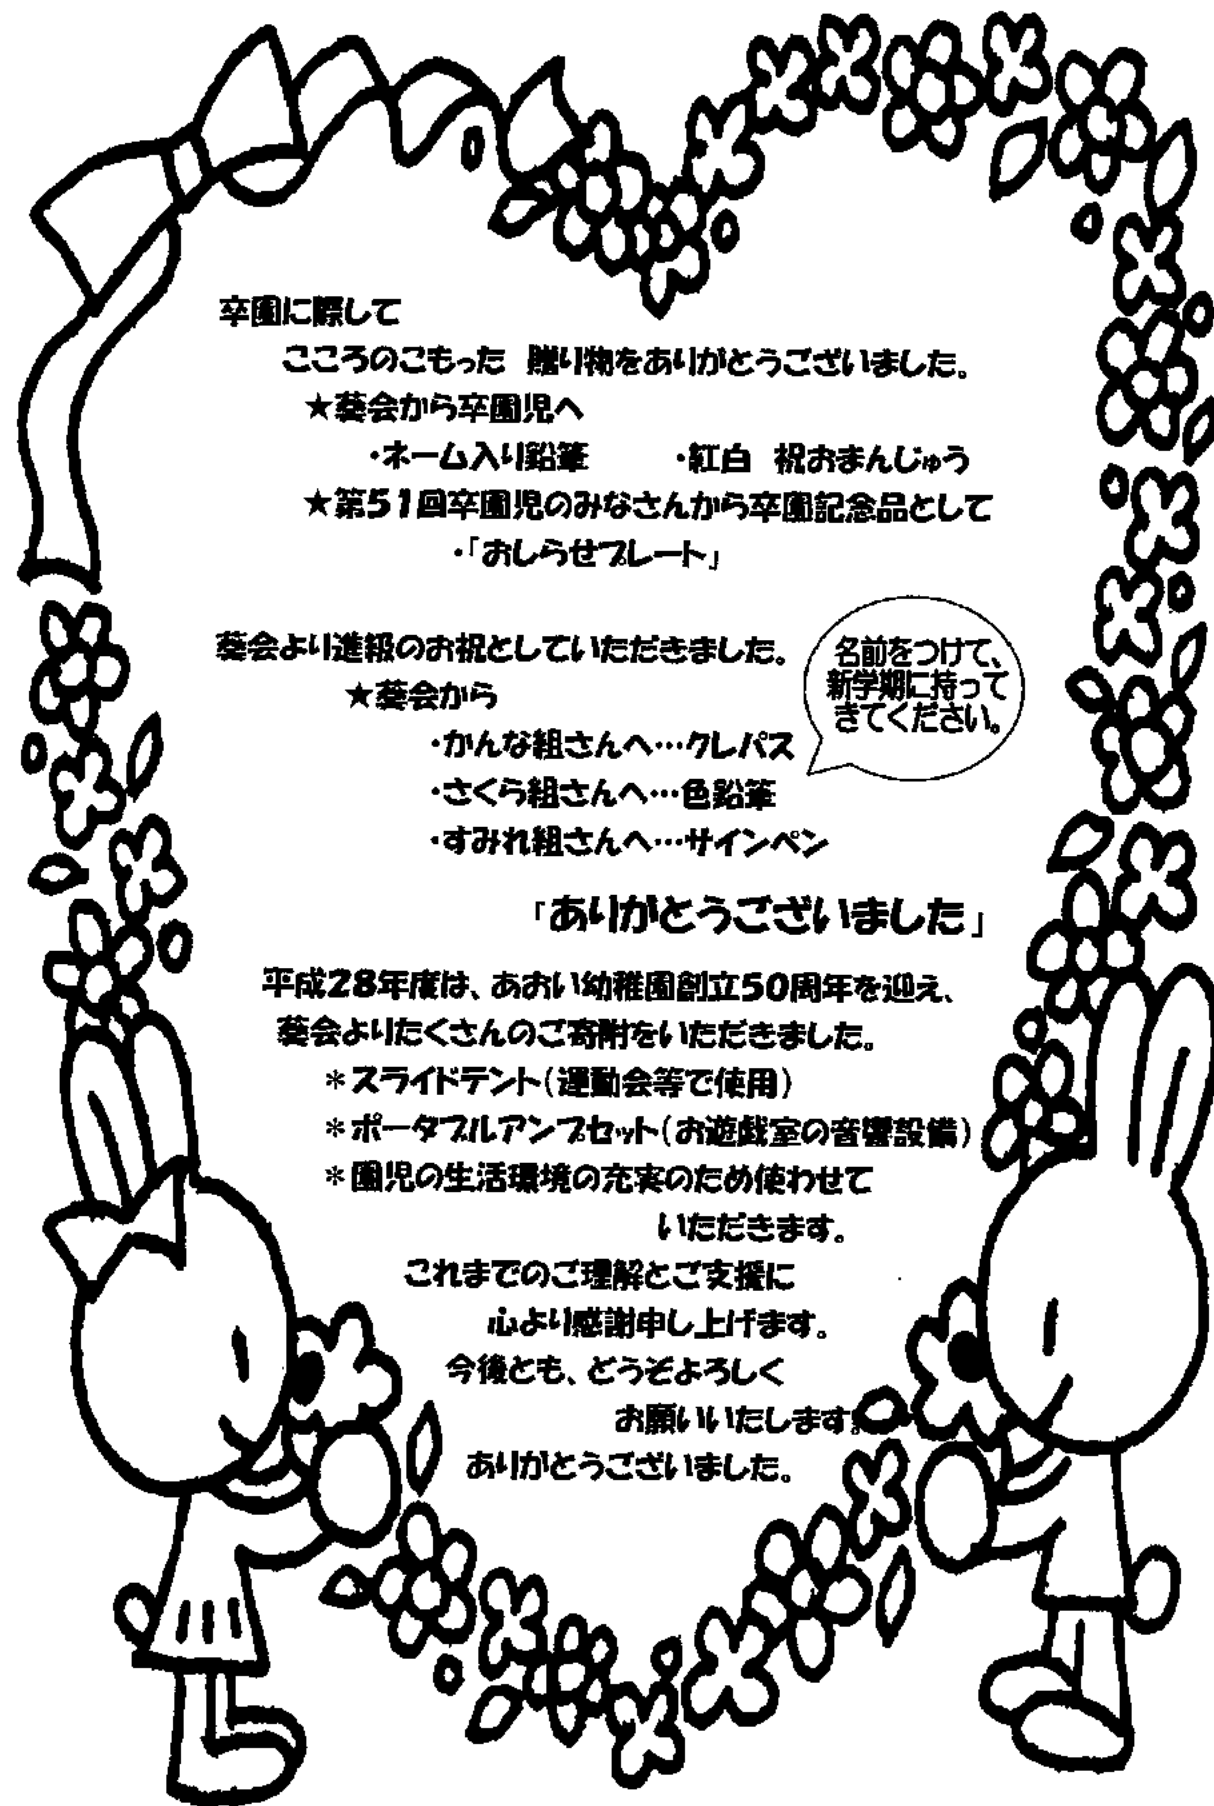 卒園に際して
こころのこもった 贈り物をありがとうございました。
★葵会から卒園児へ
・ネーム入り鉛筆 ・紅白 祝おまんじゅう
★第51回卒園児のみなさんから卒園記念品として
・「おしらせプレート」
葵会より進級のお祝としていただきました。
★葵会から
・かんな組さんへ…クレパス
・さくら組さんへ…色鉛筆
・すみれ組さんへ…サインペン
名前をつけて、
新学期に持って
きてください。
「ありがとうございました」
平成28年度は、あおい幼稚園創立50周年を迎え、
葵会よりたくさんのご寄附をいただきました。
＊スライドテント(運動会等で使用)
＊ポータブルアンプセット(お遊戯室の音響設備)
＊園児の生活環境の充実のため使わせて
いただきます。
これまでのご理解とご支援に
心より感謝申し上げます。
今後とも、どうぞよろしく
お願いいたします。
ありがとうございました。